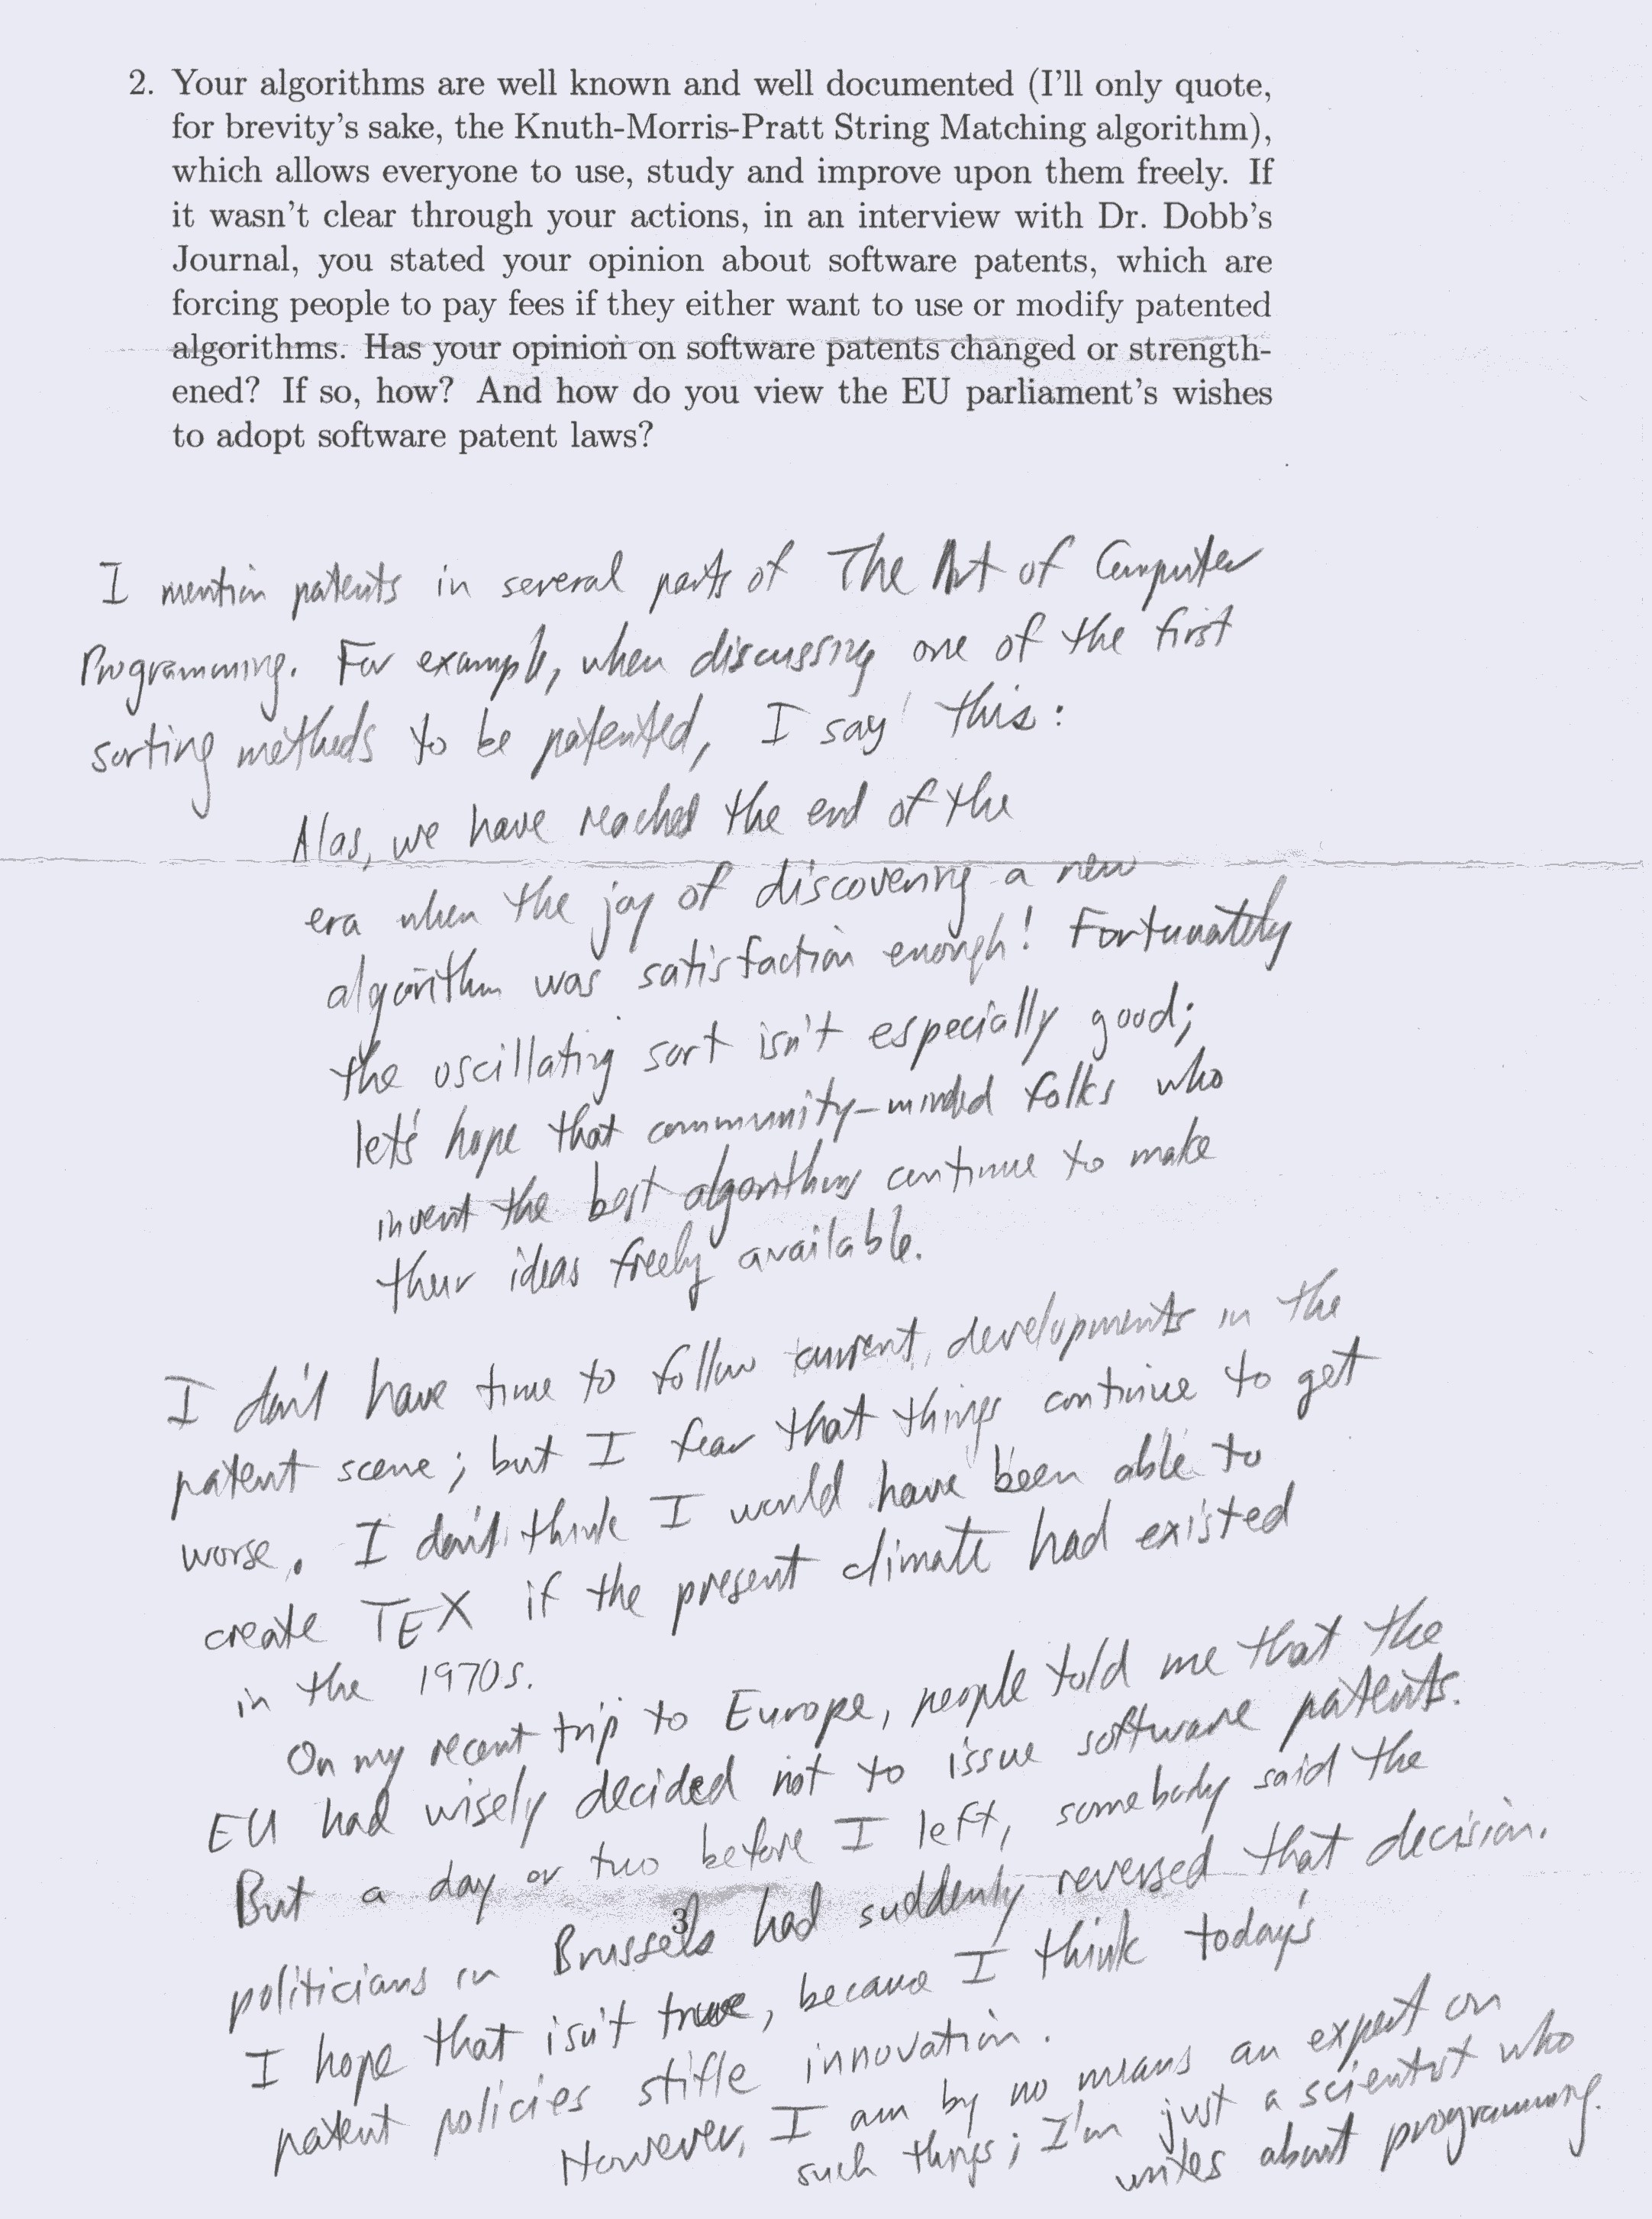 2. Your algorithms are well known and well documented (I'll only quote,
for brevity's sake, the Knuth-Morris-Pratt String Matching algorithm),
which allows everyone to use, study and improve upon them freely. If
it wasn't clear through your actions, in an interview with Dr. Dobb's
Journal, you stated your opinion about software patents, which are
forcing people to pay fees if they either want to use or modify patented
algorithms. Has your opinion on software patents changed or strength-
ened? If so, how? And how do you view the EU parliament's wishes
to adopt software patent laws?
I mention patents in several parts of The Art of Computer
Programming. For example, when discussing one of the first
sorting methods to be patented, I say this:
Alas, we have reached the end of the
era when the joy of discovering a new
algorithm was satisfaction enough! Fortunately
the oscillating sort isn't especially good;
let's hope that community-minded folks who
invent the best algorithms continue to make
their ideas freely available.
I don't have time to follow current developments in the
patent scene; but I fear that things continue to get
worse. I don't think I would have been able to
create TEX if the present climate had existed
in the 1970s.
On my recent trip to Europe, people told me that the
EU had wisely decided not to issue software patents.
But a day or two before I left, somebody said the
politicians in Brussels had suddenly reversed that decision.
3
I hope that isn't true, because I think today's
patent policies stifle innovation.
However, I am by no means an expert on
such things; I'm just a scientist who
writes about programming.